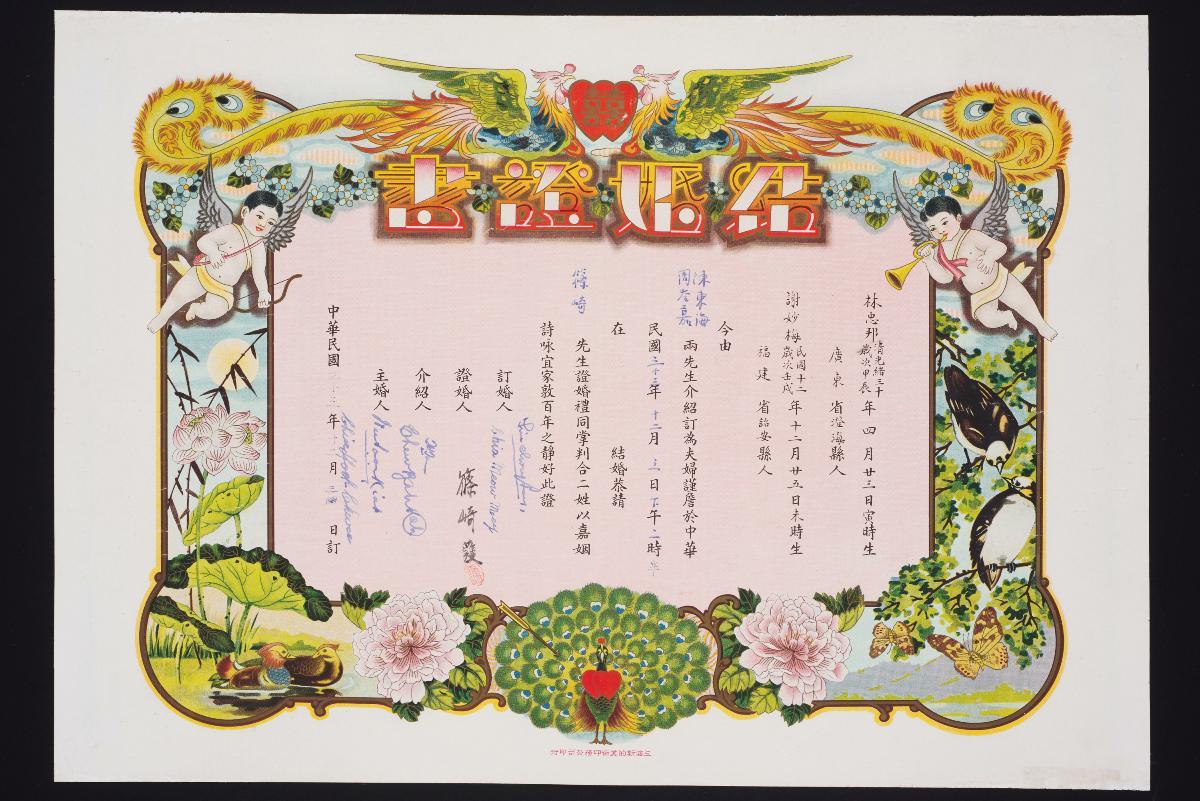 囍
結婚證書
林忠邦 清光緒三十歲次甲辰 年四月廿三日寅時生
廣東省澄海縣人
謝妙梅 民國十二歲次壬戌 年十二月廿五日未時生
福建省詒安縣人
今由
陳東海
周岺嘉 兩先生介紹訂為夫婦謹詹於中華
民國三十三年十二月三日下午二時半
在 結婚恭請
篠崎 先生證婚禮同掌判合二姓以嘉姻
詩咏宜家敦百年之靜好此證
訂婚人
Chia Meow Mooy
證婚人 篠崎護
介紹人
主婚人
中華民國三十三年十二月三日訂